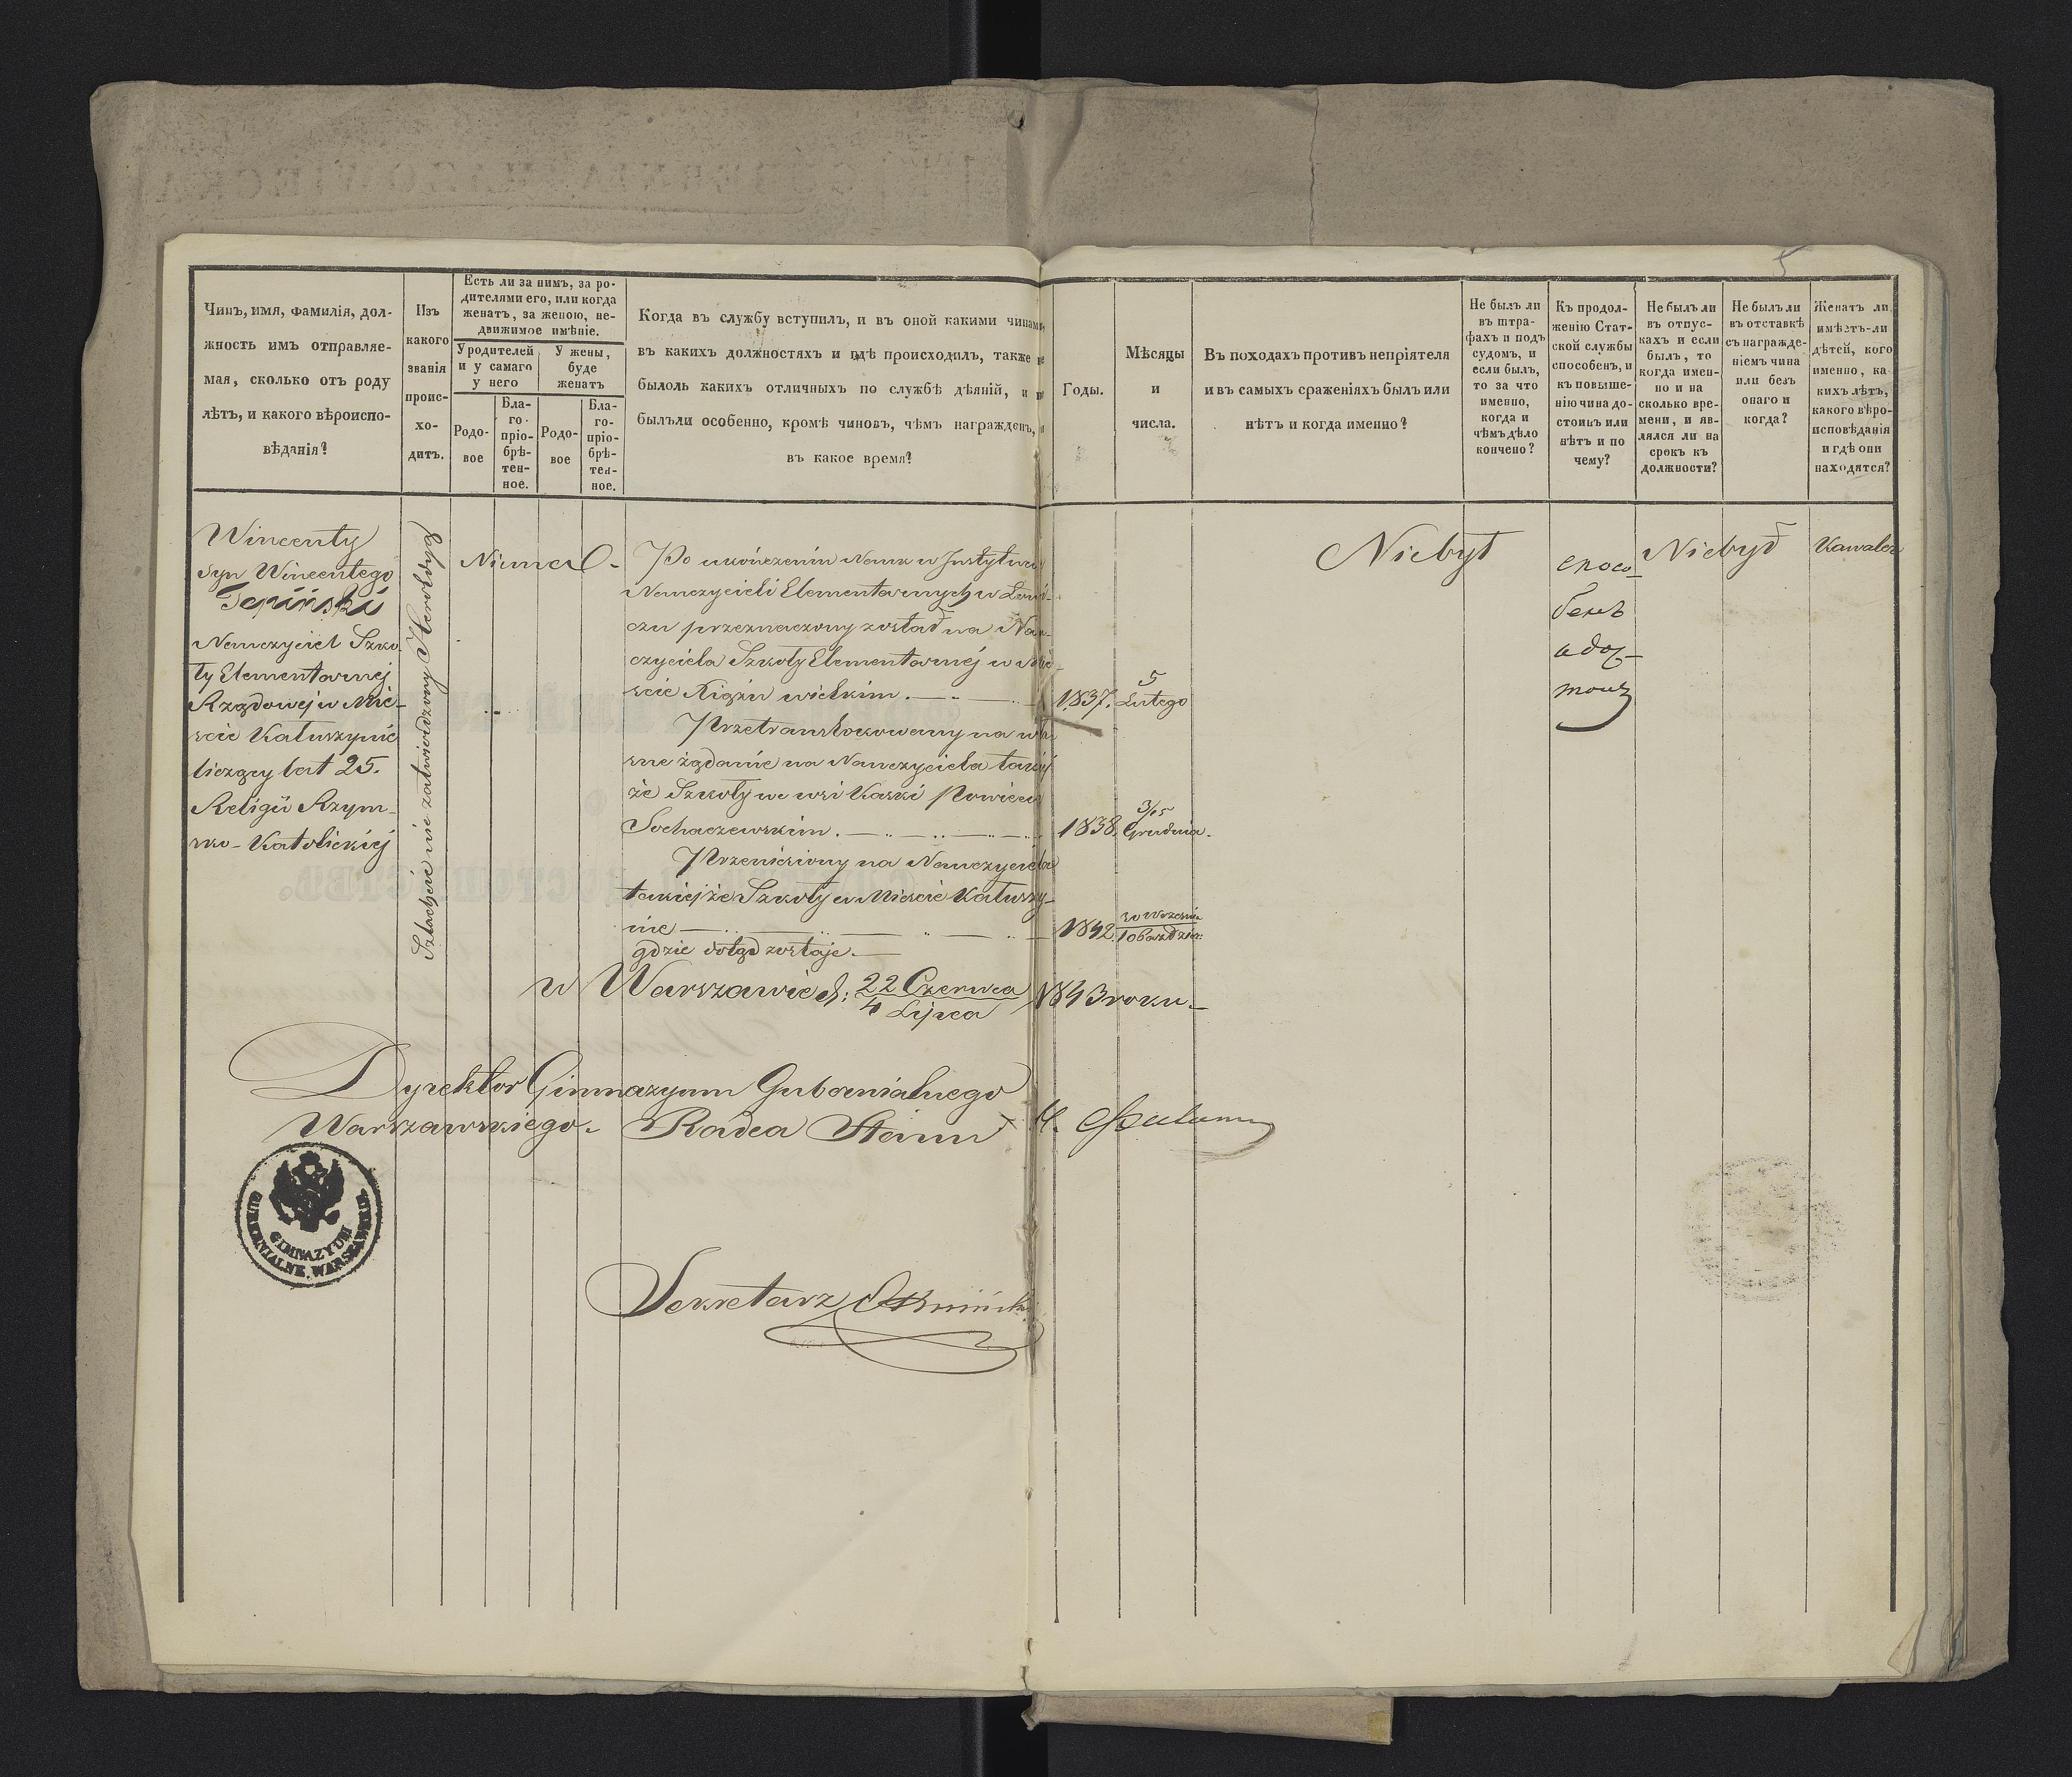 5
Чинъ, имя, фамилія, дол-
жность имъ отправляе-
мая, сколько отъ роду
лѣтъ, и какого вѣроиспо-
вѣданія?
Изъ
какого
званія
проис-
хо-
дитъ.
Есть ли за нимъ, за ро-
дителями его, или когда
женатъ, за женою, не-
движимое имѣніе.
У родителей
и у самаго
у него
У жены,
буде
женатъ
Родо-
вое
Бла-
го-
пріо-
брѣ-
тен-
ное.
Родо-
вое
Бла-
го-
пріо-
брѣ-
тен-
ное.
Когда въ службу вступилъ, и въ оной какими чинами,
въ какихъ должностяхъ и гдѣ происходилъ, также не
былоль какихъ отличныхъ по службѣ дѣяній, и не
былъли особенно, кромѣ чиновъ, чѣмъ награжденъ, и
въ какое время?
Годы.
Мѣсяцы
и
числа.
Въ походахъ противъ непріятеля
и въ самыхъ сраженіяхъ былъ или
нѣтъ и когда именно?
Не былъ ли
въ штра-
фахъ и подъ
судомъ, и
если былъ,
то за что
именно,
когда и
чѣмъ дѣло
кончено?
Къ продол-
женію Стат-
ской службы
способенъ, и
къ повыше-
нію чина до-
стоинъ или
нѣтъ и по
чему?
Не былъ ли
въ отпус-
кахъ и если
былъ, то
когда имен-
но и на
сколько вре-
мени, и яв-
лялся ли на
срокъ къ
должности?
Не былъ ли
въ отставкѣ
съ награжде-
ніемъ чина
или безъ
онаго и
когда?
Женатъ ли,
имѣетъ-ли
дѣтей, кого
именно, ка-
кихъ лѣтъ,
какого вѣро-
исповѣданія
и гдѣ они
находятся?
Wincenty
syn Wincentego
Tepiński
Nauczyciel Szko-
ły Elementarnej
Rządowej w Mie-
ście Kałuszynie
liczący lat 25.
Religii Rzym-
sko-Katolickiej
Szlachcic nie zatwierdzony Heroldyą
Niema.-
Po ukończeniu Nauk w Instytucie
Nauczycieli Elementarnych w Łowi-
czu przeznaczony został na Nau-
czyciela Szkoły Elementarnéj w Mie-
ście Kiąźu wielkim.
1837.
5
Lutego
Przetranslokowany na wła-
sne żądanie na Nauczyciela takiéj
że Szkoły we wsi Kaski Powiecie
Sochaczewskim.
1838.
3/15
Grudnia.
Przeniesiony na Nauczyciela
takiejże Szkoły w Mieście Kałuszy-
nie
1842.
20 Września
gdzie dotąd zostaje.
Niebył
спосо-
бенъ
и дос-
тоинъ
Niebył
Kawaler
w Warszawie d: 22 Czerwca
4 Lipca 1843 roku.
Dyrektor Gimnazyum Gubernialnego
Warszawskiego. Radca Stanu
GIMNAZYUM
GUBERNIALNE WARSZAWSKIE
Sekretarz